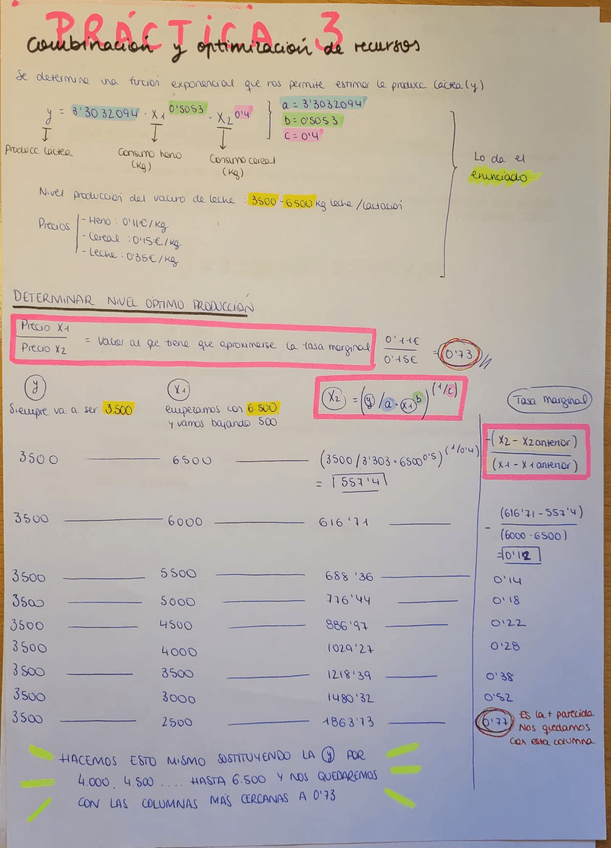 PRÁCTICA 3
Combinación y optimización de recursos
Se determina una función exponencial que nos permite estimar la producc láctea (y)
y = 3'3032094 · X1^0'5053 · X2^0'4
a = 3'3032094
b = 0'5053
c = 0'4
Producc láctea
Consumo heno (kg)
Consumo cereal (kg)
Lo da el
enunciado
Nivel producción del vacuno de leche : 3500 - 6500 kg leche / lactación
Precios
- Heno : 0'11€/kg
- Cereal : 0'15€/kg
- Leche : 0'35€/kg
DETERMINAR NIVEL OPTIMO PRODUCCIÓN
Precio X1 / Precio X2 = Valor al qe tiene que aproximarse la tasa marginal
0'11€ / 0'15€ = 0'73
y
Siempre va a ser 3500
X1
empezamos con 6500
y vamos bajando 500
X2 = (y/a·x1^b)^(1/c)
Tasa marginal
-(X2 - X2 anterior)
(X1 - X1 anterior)
3500 6500 (3500/3'303·6500^0'5)^(1/0'4)
= 557'4
3500 6000 616'71
- (616'71 - 557'4)
(6000 - 6500)
= 0'12
3500 5500 688'36 0'14
3500 5000 776'44 0'18
3500 4500 886'97 0'22
3500 4000 1029'27 0'28
3500 3500 1218'39 0'38
3500 3000 1480'32 0'52
3500 2500 1863'73 0'77
Es la + parecida
Nos quedamos
con esta columna
HACEMOS ESTO MISMO SUSTITUYENDO LA y POR
4.000, 4.500 .... HASTA 6.500 Y NOS QUEDAREMOS
CON LAS COLUMNAS MÁS CERCANAS A 0'73